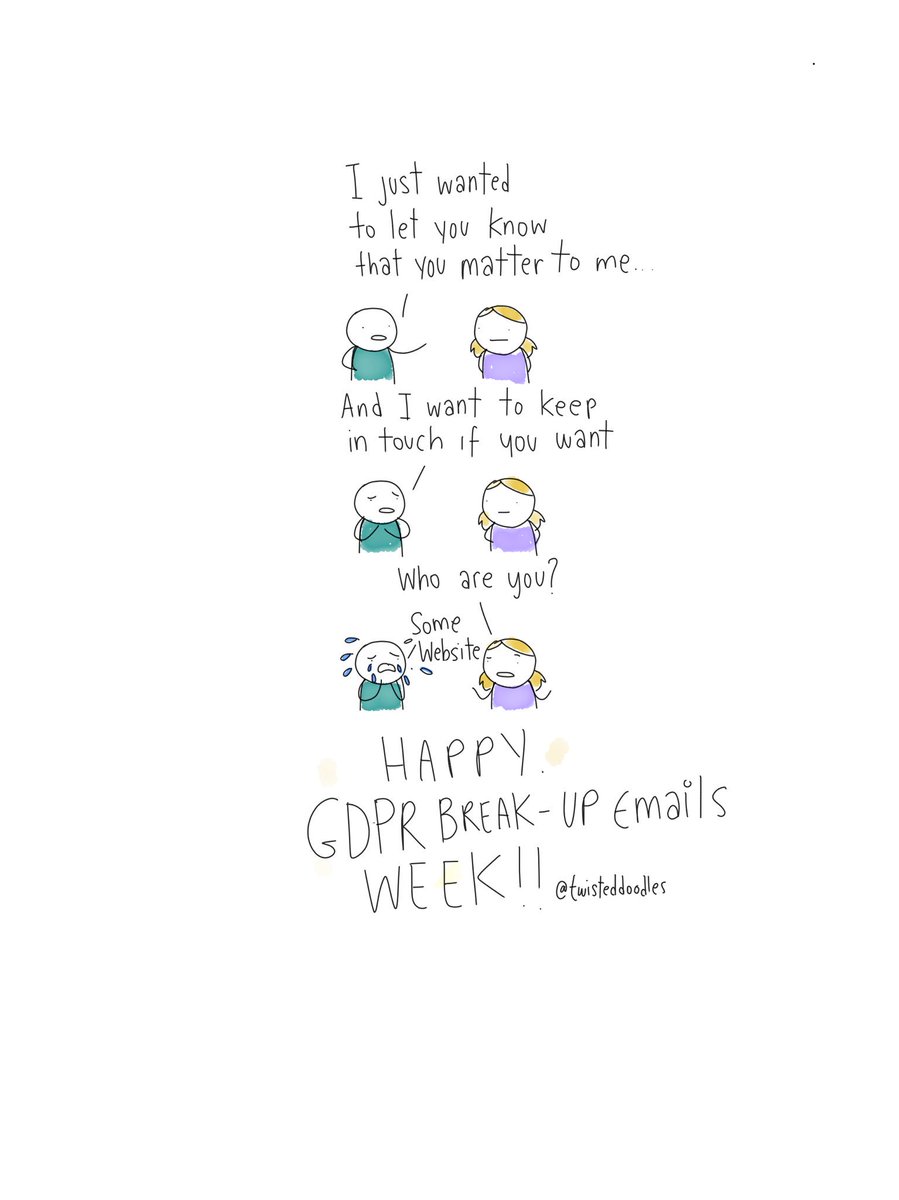 I just wanted
to let you know
that you matter to me...
And I want to keep
in touch if you want
Who are you?
Some
Website
HAPPY.
GDPR BREAK-UP Emails
WEEK!!
@twisteddoodles